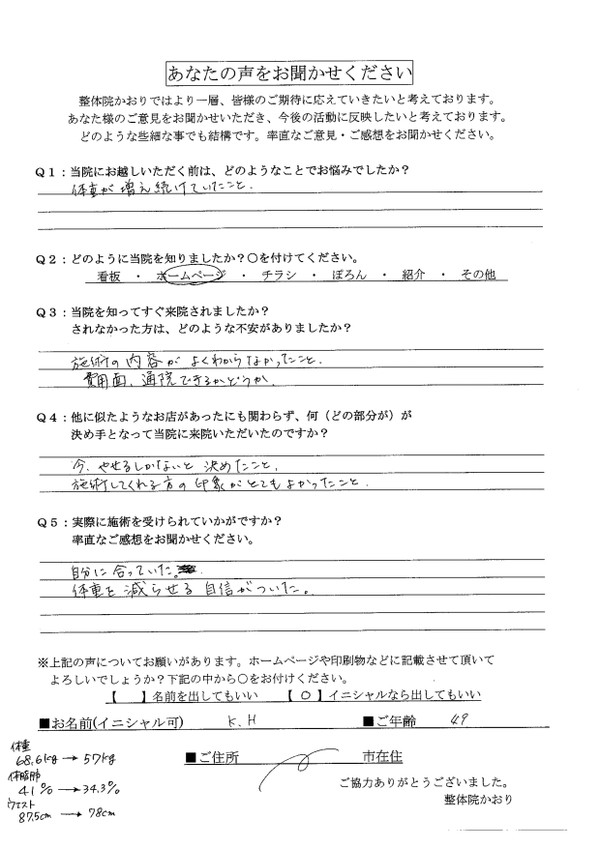 あなたの声をお聞かせください
整体院かおりではより一層、皆様のご期待に応えていきたいと考えております。
あなた様のご意見をお聞かせいただき、今後の活動に反映したいと考えております。
どのような些細な事でも結構です。率直なご意見・ご感想をお聞かせください。
Q1：当院にお越しいただく前は、どのようなことでお悩みでしたか？
体重が増え続けていたこと.
Q2：どのように当院を知りましたか？〇を付けてください。
看板 ・ ホームページ ・ チラシ ・ ぽろん ・ 紹介 ・ その他
Q3：当院を知ってすぐ来院されましたか？
されなかった方は、どのような不安がありましたか？
施術の内容がよくわからなかったこと.
費用面、通院できるかどうか.
Q4：他に似たようなお店があったにも関わらず、何（どの部分が）が
決め手となって当院に来院いただいたのですか？
今、やせるしかないと決めたこと.
施術してくれる方の印象がとてもよかったこと.
Q5：実際に施術を受けられていかがですか？
率直なご感想をお聞かせください。
自分に合っていた。
体重を減らせる自信がついた。
※上記の声についてお願いがあります。ホームページや印刷物などに記載させて頂いて
よろしいでしょうか？下記の中から〇をお付けください。
【　】名前を出してもいい 【〇】イニシャルなら出してもいい
■お名前(イニシャル可) K.H ■ご年齢 49
■ご住所 市在住
ご協力ありがとうございました。
整体院かおり
体重
68.6kg→57kg
体脂肪
41%→34.3%
ウエスト
87.5cm→78cm